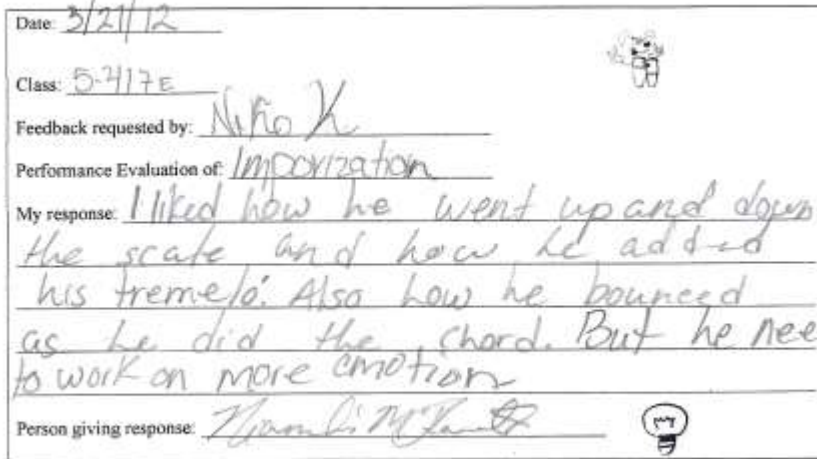 Date: 3/21/12
Class: 5-417E
Feedback requested by: Niko K
Performance Evaluation of: Imporization
My response: I liked how he went up and down
the scale and how he added
his tremelo. Also how he bounced
as he did the chord. But he nee
to work on more emotion
Person giving response: